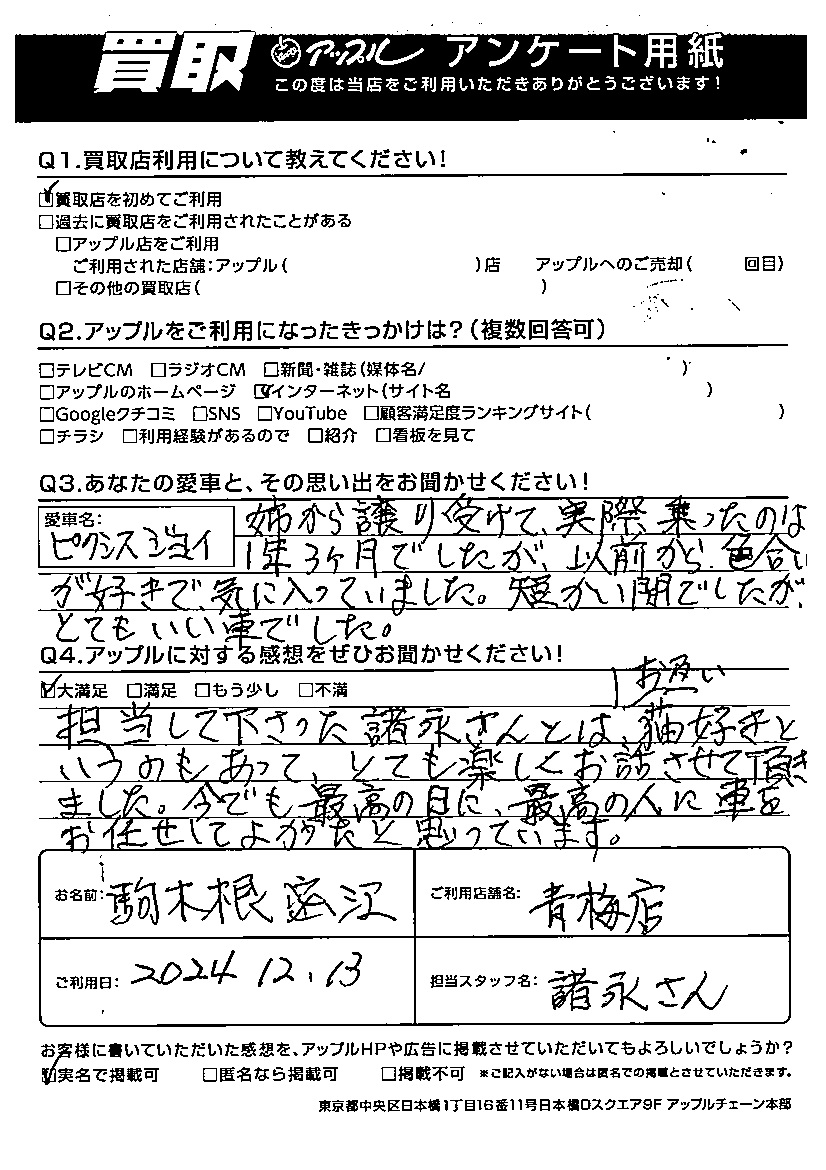 買取 アップル アンケート用紙
この度は当店をご利用いただきありがとうございます!
Q1.買取店利用について教えてください!
☑買取店を初めてご利用
□過去に買取店をご利用されたことがある
□アップル店をご利用
ご利用された店舗:アップル( )店 アップルへのご売却( 回目)
□その他の買取店( )
Q2.アップルをご利用になったきっかけは?(複数回答可)
□テレビCM □ラジオCM □新聞・雑誌(媒体名/ )
□アップルのホームページ ☑インターネット(サイト名 )
□Googleクチコミ □SNS □YouTube □顧客満足度ランキングサイト( )
□チラシ □利用経験があるので □紹介 □看板を見て
Q3.あなたの愛車と、その思い出をお聞かせください!
愛車名:
ピクシスジョイ
姉から譲り受けて、実際乗ったのは
1年3ヶ月でしたが、以前から色合い
が好きで、気に入っていました。短かい間でしたが、
とてもいい車でした。
Q4.アップルに対する感想をぜひお聞かせください!
☑大満足 □満足 □もう少し □不満
お互い
担当して下さった諸永さんとは、猫好きと
いうのもあって、とても楽しくお話させて頂き
ました。今でも最高の日に、最高の人に車を
お任せしてよかったと思っています。
お名前: 駒木根
ご利用店舗名: 青梅店
ご利用日: 2024 12.13
担当スタッフ名: 諸永さん
お客様に書いていただいた感想を、アップルHPや広告に掲載させていただいてもよろしいでしょうか?
☑実名で掲載可 □匿名なら掲載可 □掲載不可 ※ご記入がない場合は匿名での掲載とさせていただきます。
東京都中央区日本橋1丁目16番11号日本橋Dスクエア9F アップルチェーン本部